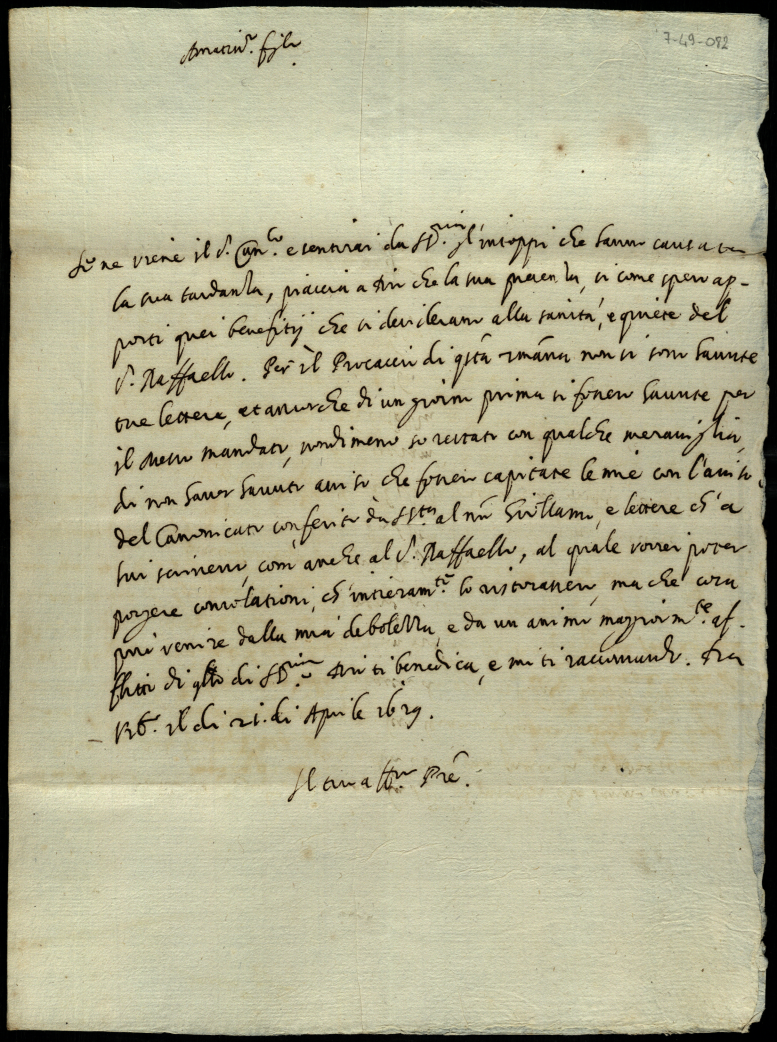 7-49-082
Amatiss.º figlo
Se ne viene il S. e sentirai da gl'intoppi che hanno causata
la sua tardanza, piaccia a Dio che la sua presenza, si come spero ap-
porti quei benefitij che si desiderano alla sanità, e quiete del
S. Raffaello. Per il Procaccio di qstà non si sono havute
tue lettere, et ancorche di un giorno prima si fossero havute per
il Messo mandato, nondimeno so restato con qualche meraviglia,
di non haver havuto aviso che fossero capitate le mie con l'aviso
del Canonicato conferito da S. Stà al nrõ Girillamo, e lettere ch'a
lui scrivevo, com'anche al S. Raffaello, al quale vorrei poter
porgere consolationi, ch'intieram.te lo ristorassero, ma che cosa
può venire dalla mia debolezza, e da un animo maggiorm.te af-
flitto di qllo di Dio ti benedica, e mi ti raccomando. Di
il di 21. di Aprile 1629.
Il tuo aff.mo Prẽ.